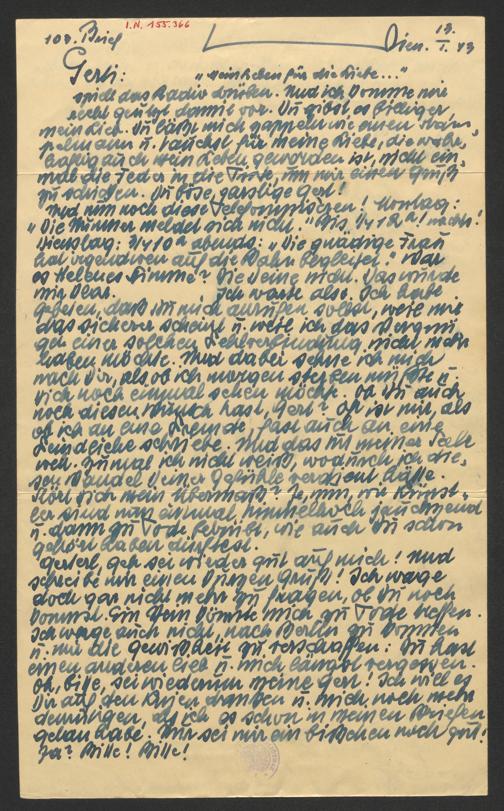 I.N. 155.366
107. Brief
Wien. 13. I. 43
Gerti: "Mein Leben für die Liebe..."
spielt das Radio drüben. Und ich komme mir
recht gefoppt damit vor. Du gibst es billiger
mein Lieb. Du läßt mich zappeln wie einen Ham-
pelmann u. tauchst für meine Liebe, die wahr-
haftig auch mein Leben geworden ist, nicht ein-
mal die Feder in die Tinte, um mir einen Gruß
zu schicken. Du böse, garstige Gert!
Und nun noch diese Telefonmiseren! Montag:
"Die Nummer meldet sich nicht." Bis 3/4 12h! nachts!
Dienstag: 3/4 10h abends: "Die gnädige Frau
hat irgendwen auf die Bahn begleitet." War
es Helenes Stimme? Die Deine nicht. Das würde
mir klar. Ich warte also. Ich habe
gebeten, daß Du mich anrufen sollst, weil mir
das sicherer scheint u. weil ich das Vergnü-
gen einer solchen Fehlverbindung nicht mehr
haben möchte. Und dabei sehne ich mich
nach Dir, als ob ich morgen sterben müßte u.
Dich noch einmal sehen möchte. Ob Du auch
noch diesen Wunsch hast, Gert? Oh ist mir, als
ob ich an eine Fremde, fast auch an eine
Feindliche schriebe. Und das tut meiner Seele
weh. Zumal ich nicht weiß, wodurch ich die-
sen Wandel Deiner Gefühle verdient hätte.
Stört Dich mein Übermaß? Je nun, wir Künst-
ler sind nun einmal himmelhoch jauchzend
u. dann zu Tode betrübt, wie auch Du schon
gehört haben dürftest.
Gerterl, geh sei wieder gut auf mich! Und
schreibe mir einen kurzen Gruß! Ich wage
doch gar nicht mehr zu fragen, ob Du noch
kommst. Ein Nein könnte mich zu Tode treffen.
Ich wage auch nicht, nach Berlin zu kommen
u. mir die Gewißheit zu verschaffen: Du hast
einen anderen lieb u. mich längst vergessen.
Oh, bitte, sei wiederum meine Gert! Ich will es
Dir auf den Knien danken u. mich noch mehr
demütigen, als ich es schon in meinen Briefen
getan habe. Nur sei mir ein bißchen noch gut!
Ja? Bitte! Bitte!